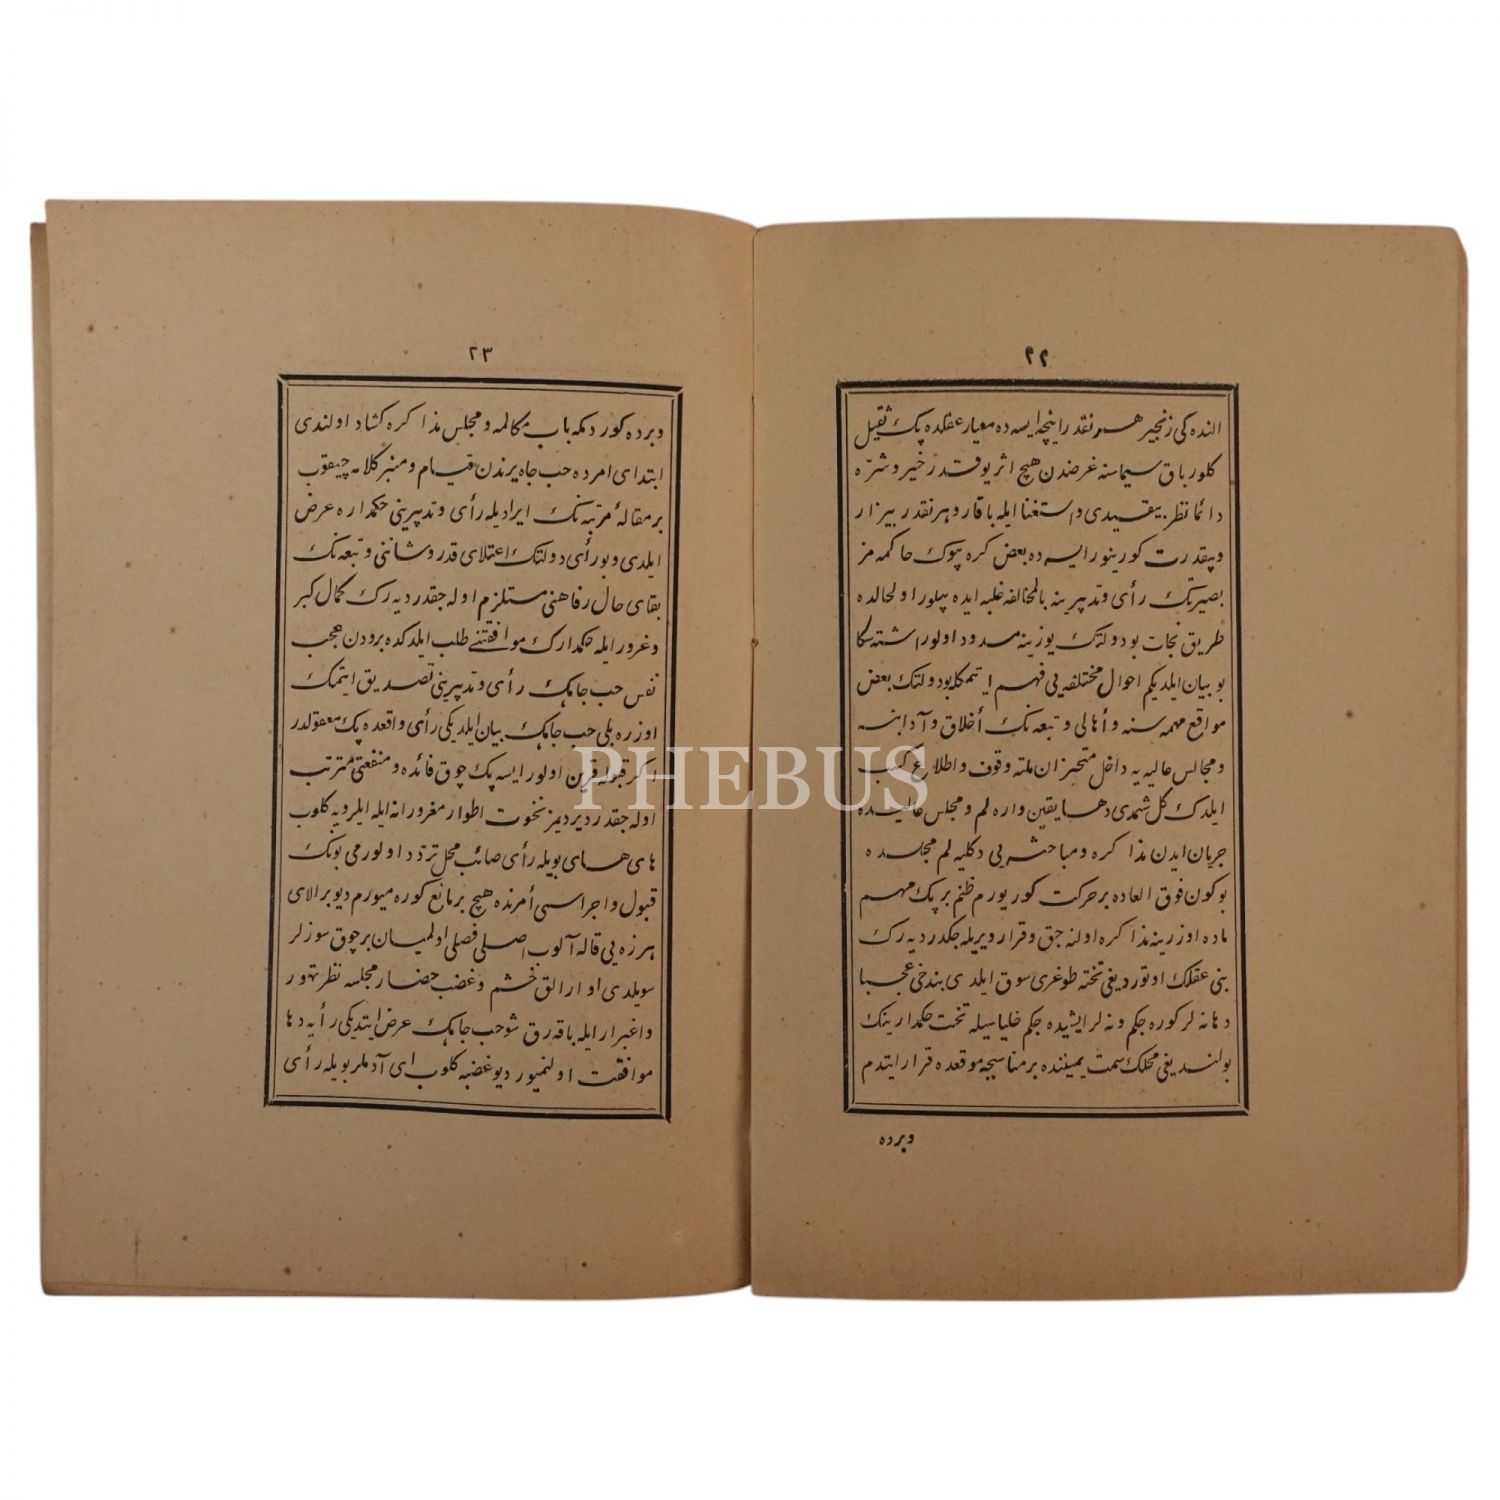 ٢٢
النده کی زنجیر هر نقدر اینجه ایسه ده معیار عقلده پک ثقیل
کلور باق سیماسنه غرضدن هیچ اثر یوقدر خیر و شره
دائما نظر بیقیدی و استغنا ایله باقار و هر نقدر بیزار
و بیقدرت کورینور ایسه ده بعض کره بیوک حاکمه مز
بصیرتک رأی و تدبیرینه بالمخالفه غلبه ایده بیلور اولحالده
طریق نجات بو دولتک یوزینه مسدود اولور اشته سکا
بو بیان ایلدیکم احوال مختلفه یی فهم ایتمکله بو دولتک بعض
مواقع مهمه سنه و أهالی و تبعه نک أخلاق و آدابنه
و مجالس عالیه یه داخل متحیزان ملته وقوف و اطلاع کسب
ایلدک کل شمدی دها یقین واره لم و مجلس عالیده
جریان ایدن مذاکره و مباحثه یی دکلیه لم مجلسده
بو کون فوق العاده بر حرکت کوریورم ظنم بر پک مهم
ماده اوزرینه مذاکره اولنه جق و قرار ویریله جکدر دیه رک
بنی عقلک اوتوردیغی تخته طوغری سوق ایلدی بن دخی عجبا
دها نه لر کوره جکم و نه لر ایشیده جکم خلیاسیله تخت حکمدارینک
بولندیغی محلک سمت یمیننده بر مناسبجه موقعده قرار ایتدم
وبرده
٢٣
وبرده کوردمکه باب مکالمه و مجلس مذاکره کشاد اولندی
ابتدای امرده حب جاه یرندن قیام و منبر کلامه چیقوب
بر مقالهٔ مرتبه نک ایرادیله رأی و تدبیرینی حکمداره عرض
ایلدی و بو رأی دولتک اعتلای قدر و شاننی و تبعه نک
بقای حال رفاهنی مستلزم اوله جقدر دیه رک کمال کبر
و غرور ایله حکمدارک موافقتنی طلب ایلدکده برودن عجب
نفس حب جاهک رأی و تدبیرینی تصدیق ایتمک
اوزره بلی حب جاهک بیان ایلدیکی رأی واقعده پک معقولدر
اکر قبوله قرین اولور ایسه پک چوق فائده و منفعتی مترتب
اوله جقدر دیر دیمز نخوت اطوار مغرورانه ایله ایلرویه کلوب
های های بویله رأی صائب محل تردد اولورمی بونک
قبول و اجراسی أمرنده هیچ بر مانع کوره میورم دیو بر الای
هرزه یی قاله آلوب اصلی فصلی اولمیان بر چوق سوزلر
سویلدی او ارالق خشم و غضب حضار مجلسه نظر تهور
و اغبرار ایله باقه رق شو حب جاهک عرض ایتدیکی رأیه دها
موافقت اولنمیور دیو غضبه کلوب ای آدملر بویله رأی